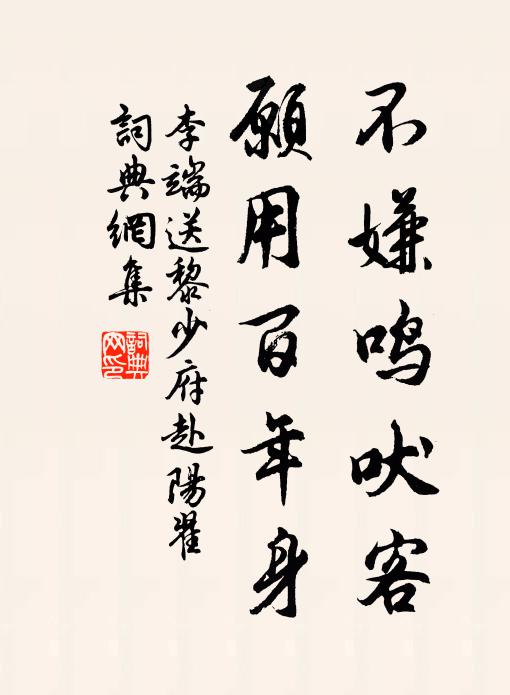 不嫌鸣吠客
願用百年身
李端送黎少府赴陽翟
詞典網集
詞典
网印